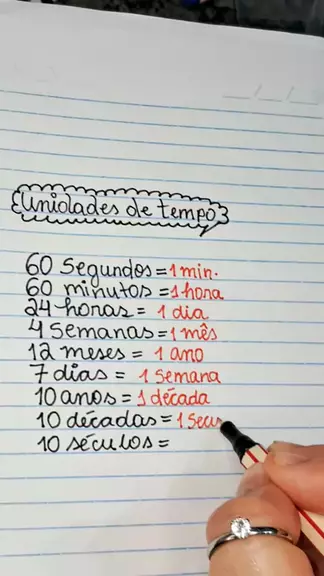 Unidades de tempo
60 Segundos = 1 min.
60 minutos = 1 hora
24 horas = 1 dia
4 Semanas = 1 mês
12 meses = 1 ano
7 dias = 1 Semana
10 anos = 1 década
10 décadas = 1 Secu
10 séculos =